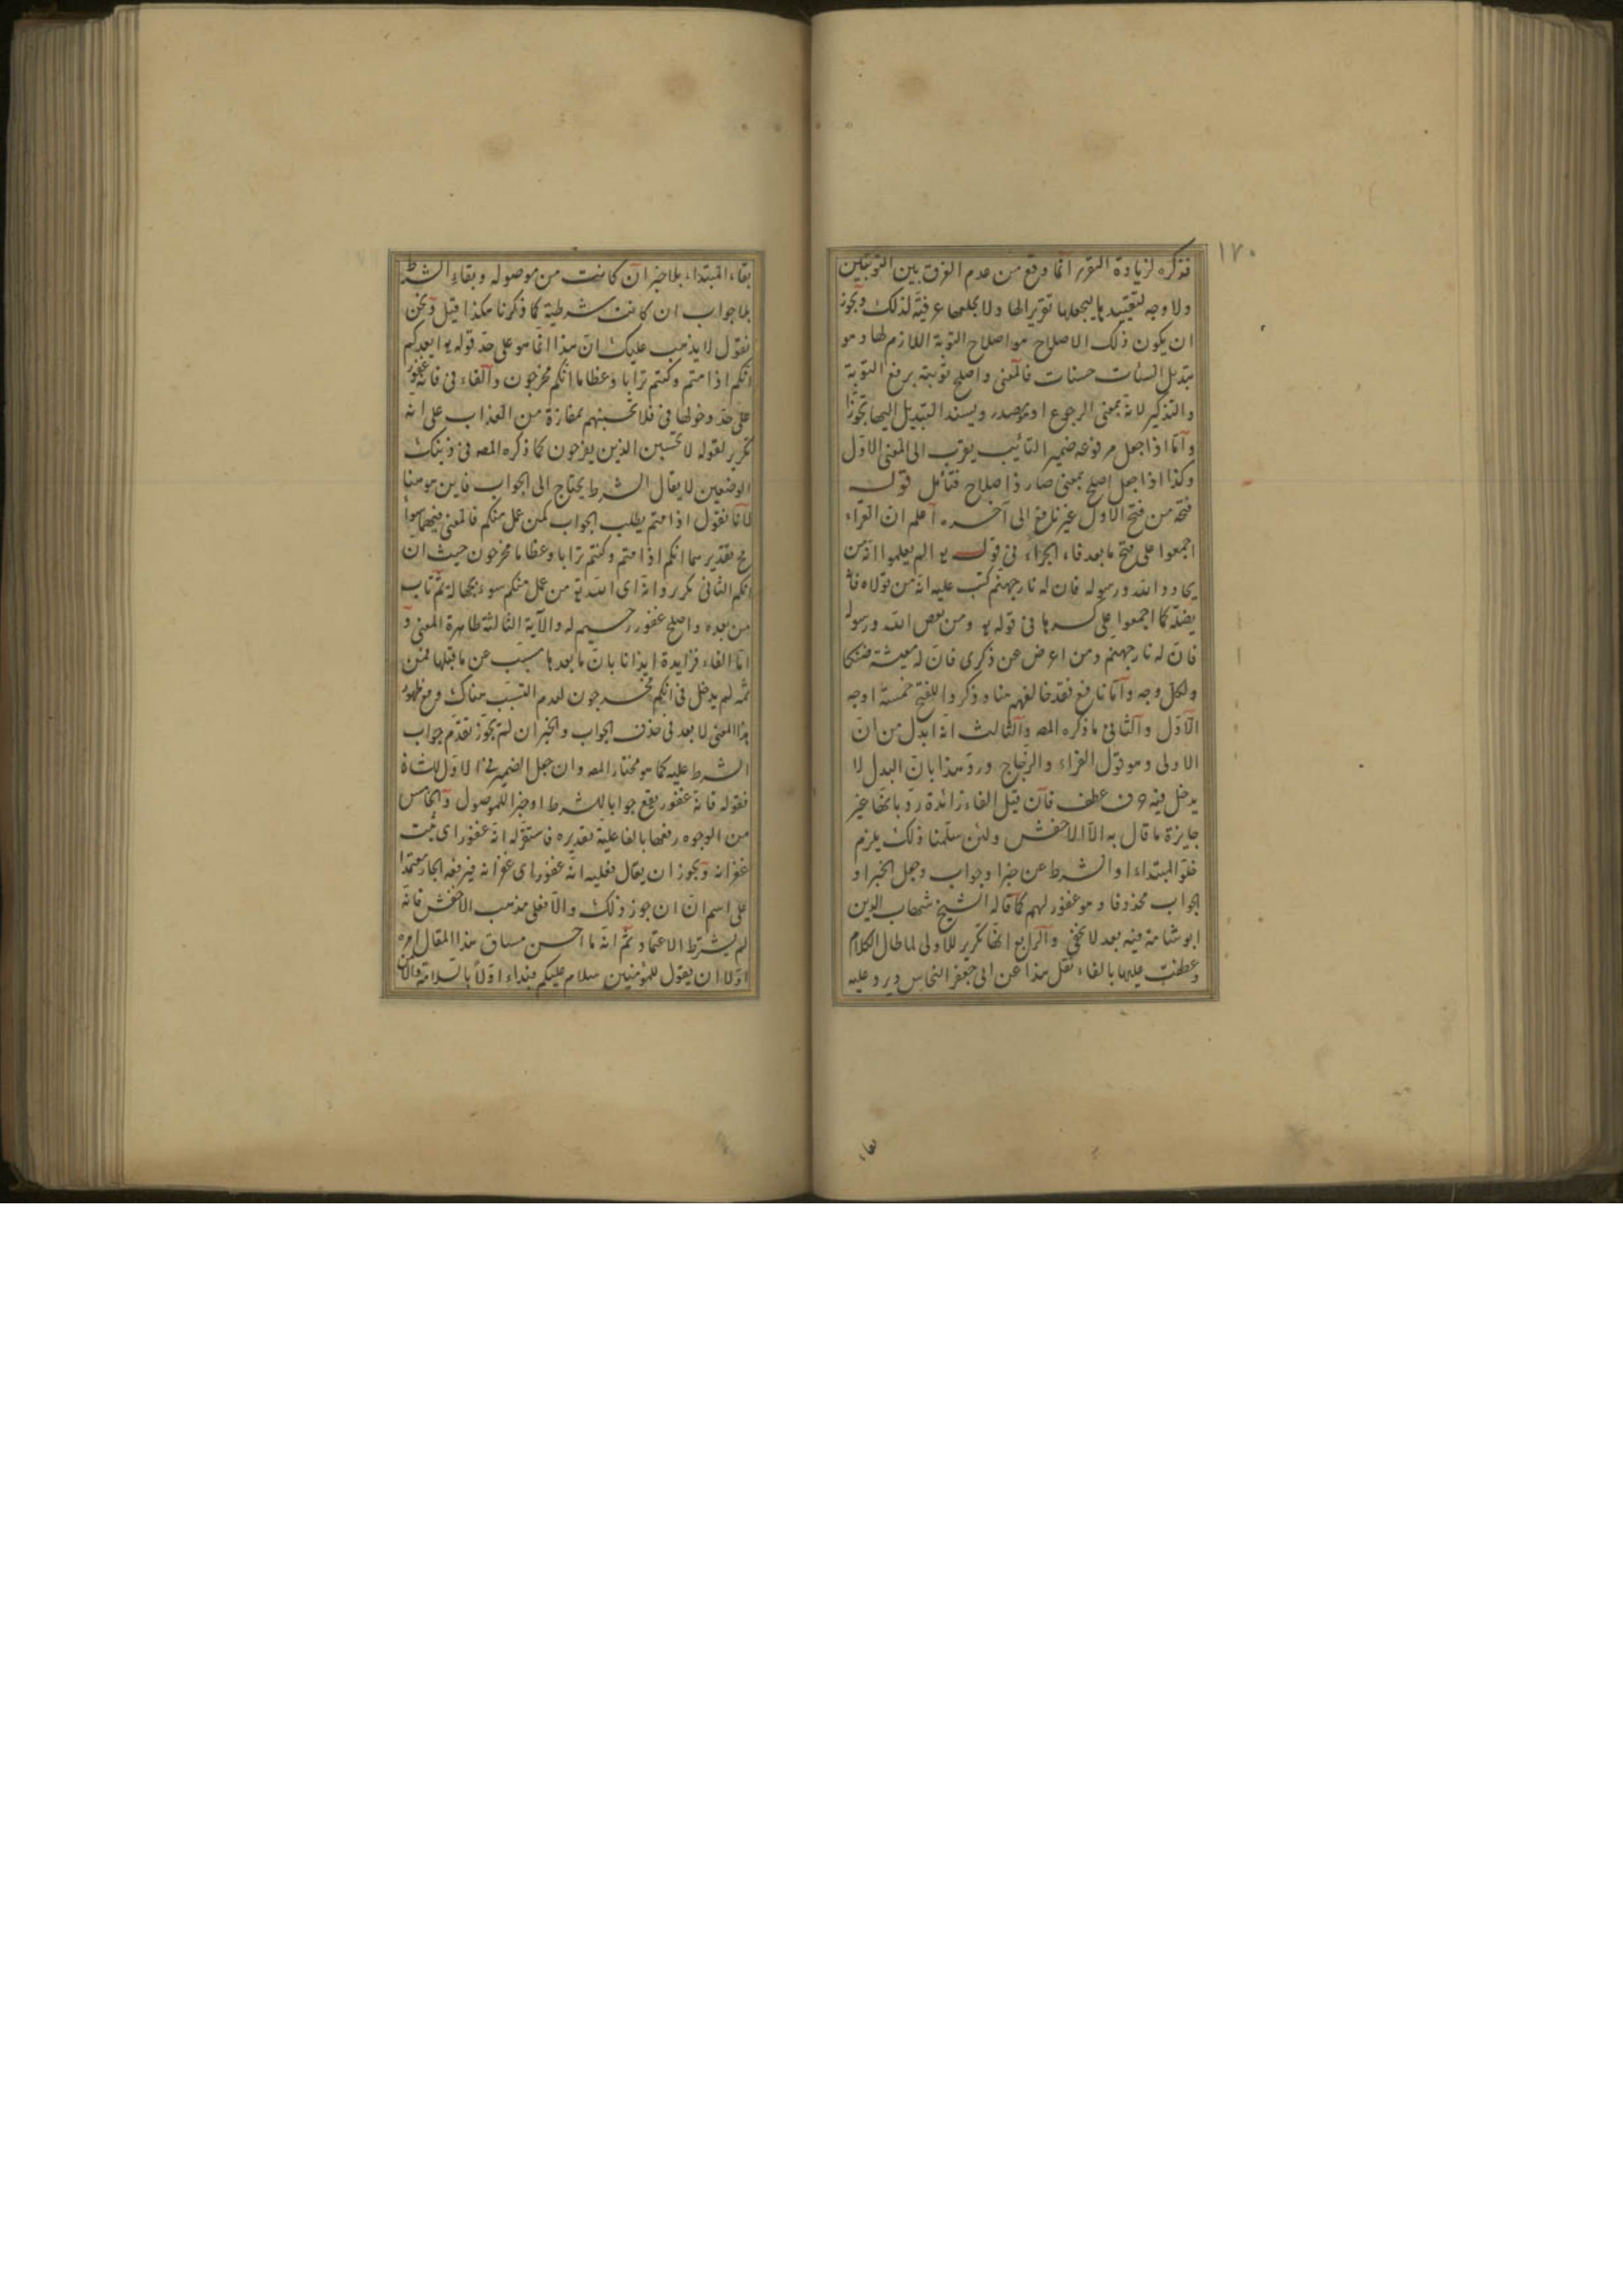 ١٧٠
فذكره لزيادة التقرر انما وقع من عدم الفرق بين التوبتين
ولا وجه لتقييدها ليجعلها تقريرا لها ولا بجعلها عرفية لذلك ويجوز
ان يكون ذلك الاصلاح هو اصلاح التوبة اللازم لها وهو
تبديل السيئات حسنات فالمعنى واصلح توبته برفع التوبة
والتذكير لانه بمعنى الرجوع او مصدر ويسند التبديل اليها تجوزا
وامّا اذا جعل مرفوعه ضمير التائب يقرب الى المعنى الاول
وكذا اذا جعل اصلح بمعنى صار ذا صلاح فتأمل قوله
فتحه من فتح الاول غير نافع الى آخره اعلم ان القراء
اجمعوا على فتح ما بعد فاء الجزاء في قوله تع الم يعلموا انه من
يحادد الله ورسوله فان له نار جهنم كتب عليه انه من تولاه فانه
يضله كما اجمعوا على كسرها في قوله تع ومن يعص الله ورسوله
فان له نار جهنم ومن اعرض عن ذكري فان له معيشة ضنكا
ولكل وجه وامّا نافع فقد خالفهم هنا وذكروا للفتح خمسة اوجه
الاول والثاني ما ذكره المصـ والثالث انه ابدل من ان
الاولى وهو قول الفراء والزجاج وردّ هذا بان البدل لا
يدخل فيه حرف عطف فان قيل الفاء زائدة ردّ بانها غير
جايزة ما قال به الا الاخفش ولئن سلمنا ذلك يلزم
خلو المبتداء او الشرط عن خبر او جواب وجعل الخبر او
الجواب محذوفا وهو غفور لهم كما قاله الشيخ شهاب الدين
ابو شامة فيه بعد لا يخفى والرابع انها تكرير للاولى لما طال الكلام
وعطفت عليها بالفاء نقل هذا عن ابي جعفر النحاس ويرد عليه
بقاء
بقاء المبتداء بلا خبر ان كانت من موصولة وبقاء الشرط
بلا جواب ان كانت شرطية كما ذكرنا هكذا قيل ونحن
نقول لا يذهب عليك ان هذا انما هو على حد قوله تع ايعدكم
انكم اذا متم وكنتم ترابا وعظاما انكم مخرجون والفاء في فانه غفور
على حد دخولها في فلا تحسبنهم بمفازة من العذاب على انه
تكرير لقوله لا تحسبن الذين يفرحون كما ذكره المصـ في ذينك
الوضعين لا يقال الشرط يحتاج الى الجواب فاين هو هنا
لانا نقول اذا متم يطلب الجواب كمن عمل منكم فالمعنى فيهما سواء
ح تقدير هما انكم اذا متم وكنتم ترابا وعظاما مخرجون حيث ان
انكم الثاني تكرر وانه اى الله تع من عمل منكم سوء بجهالة ثم تاب
من بعده واصلح غفور رحيم له والآية الثالثة ظاهرة المعنى و
امّا الفاء فزايدة ايذانا بانّ ما بعدها مسبّب عن ما قبلها فمن
ثمه لم يدخل في انكم مخرجون لعدم التسبّب هناك ومع ظهور
هذا المعنى لا بعد في حذف الجواب والخبر ان لم يجوّز تقدّم جواب
الشرط عليه كما هو مختار المصـ وان جعل الضمير في الاول للشان
فقوله فانه غفور يقع جوابا للشرط او خبرا للموصول والخامس
من الوجوه رفعها بالفاعلية تقديره فاستقرّ له انه غفور اى ثبت
غفرانه ويجوز ان يقال فعليه انه غفور اى غفرانه فيرفعه الجار معتمدا
على اسم انّ ان جوز ذلك والّا فعلى مذهب الاخفش فانه
لم يشترط الاعتماد ثم انه ما احسن مساق هذا المقال امره
اوّلا ان يقول للمؤمنين سلام عليكم فبداء اوّلا بالسلامة والامن